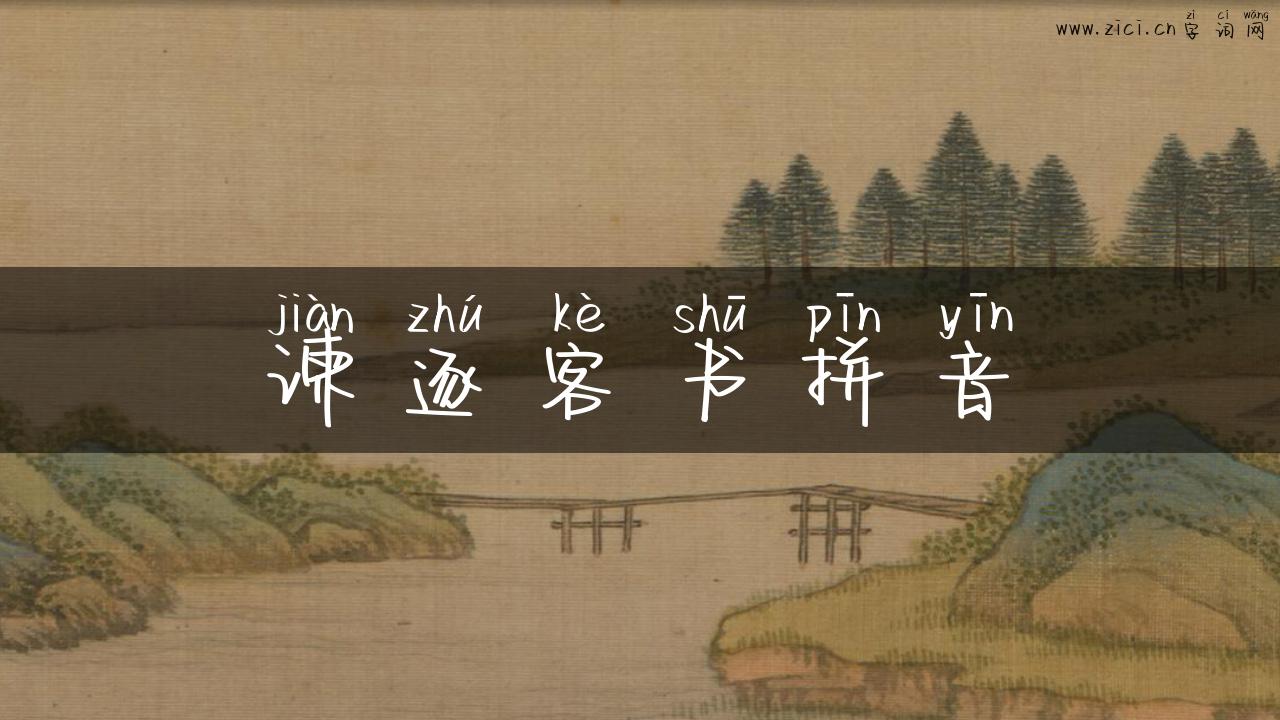 zì cí wǎng
www.zici.cn字词网
jiàn zhú kè shū pīn yīn
谏逐客书拼音